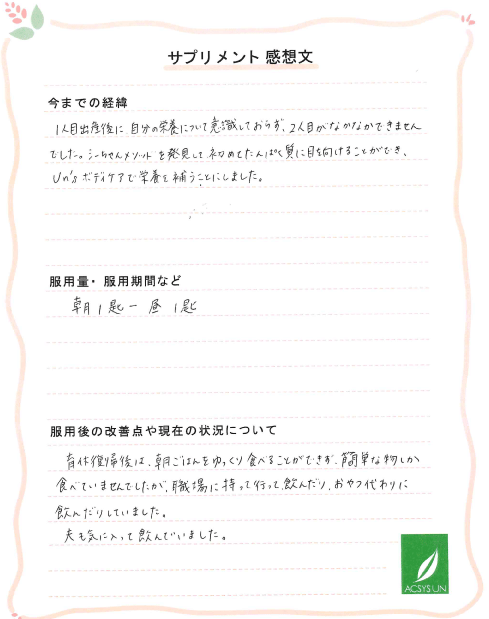 サプリメント 感想文
今までの経緯
1人目出産後に自分の栄養について意識しておらず、2人目がなかなかできません
でした。シーちゃんメソッドを発見して初めてたんぱく質に目を向けることができ、
Un'sボディケアで栄養を補うことにしました。
服用量・服用期間など
朝1匙 ー 昼1匙
服用後の改善点や現在の状況について
育休復帰後は、朝ごはんをゆっくり食べることができず、簡単な物しか
食べていませんでしたが、職場に持って行って飲んだり、おやつ代わりに
飲んだりしていました。
夫も気に入って飲んでいました。
ACSYSUN